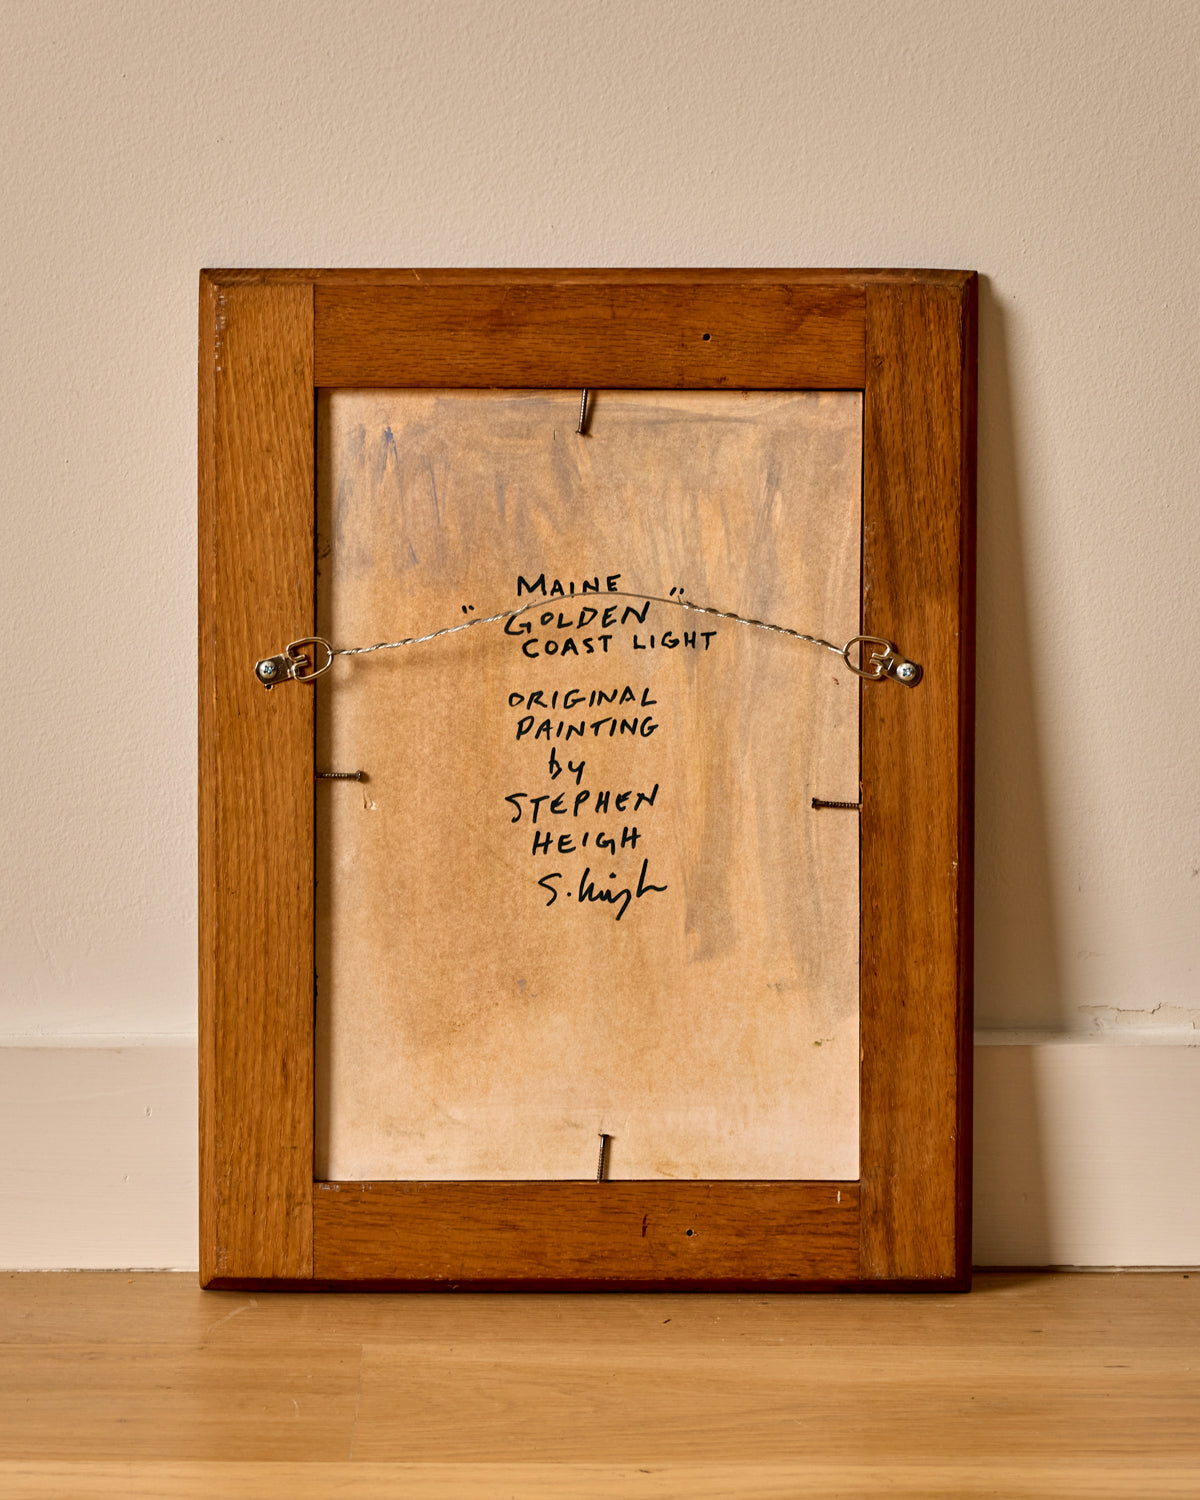 MAINE
" GOLDEN "
COAST LIGHT
ORIGINAL
PAINTING
by
STEPHEN
HEIGH
S. Heigh